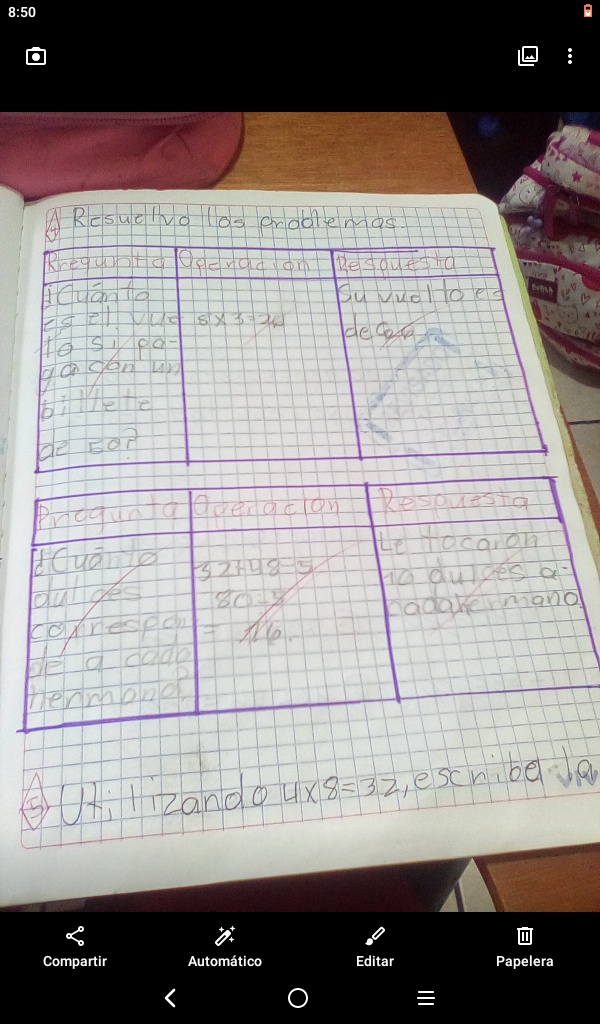 8:50
4 Resuelvo los problemas.
Pregunta Operación Respuesta
¿Cuánto
es el vuel
to si pa-
ga con un
billete
de 50?
8x3=24
Su vuelto es
de
Pregunta Operación Respuesta
¿Cuánto
dulces
correspon
de a cada
hermano?
32+48÷5
80÷5
= 16.
Le tocaron
16 dulces a
cada hermano.
5 Utilizando 4x8=32, escribe la
Compartir
Automático
Editar
Papelera